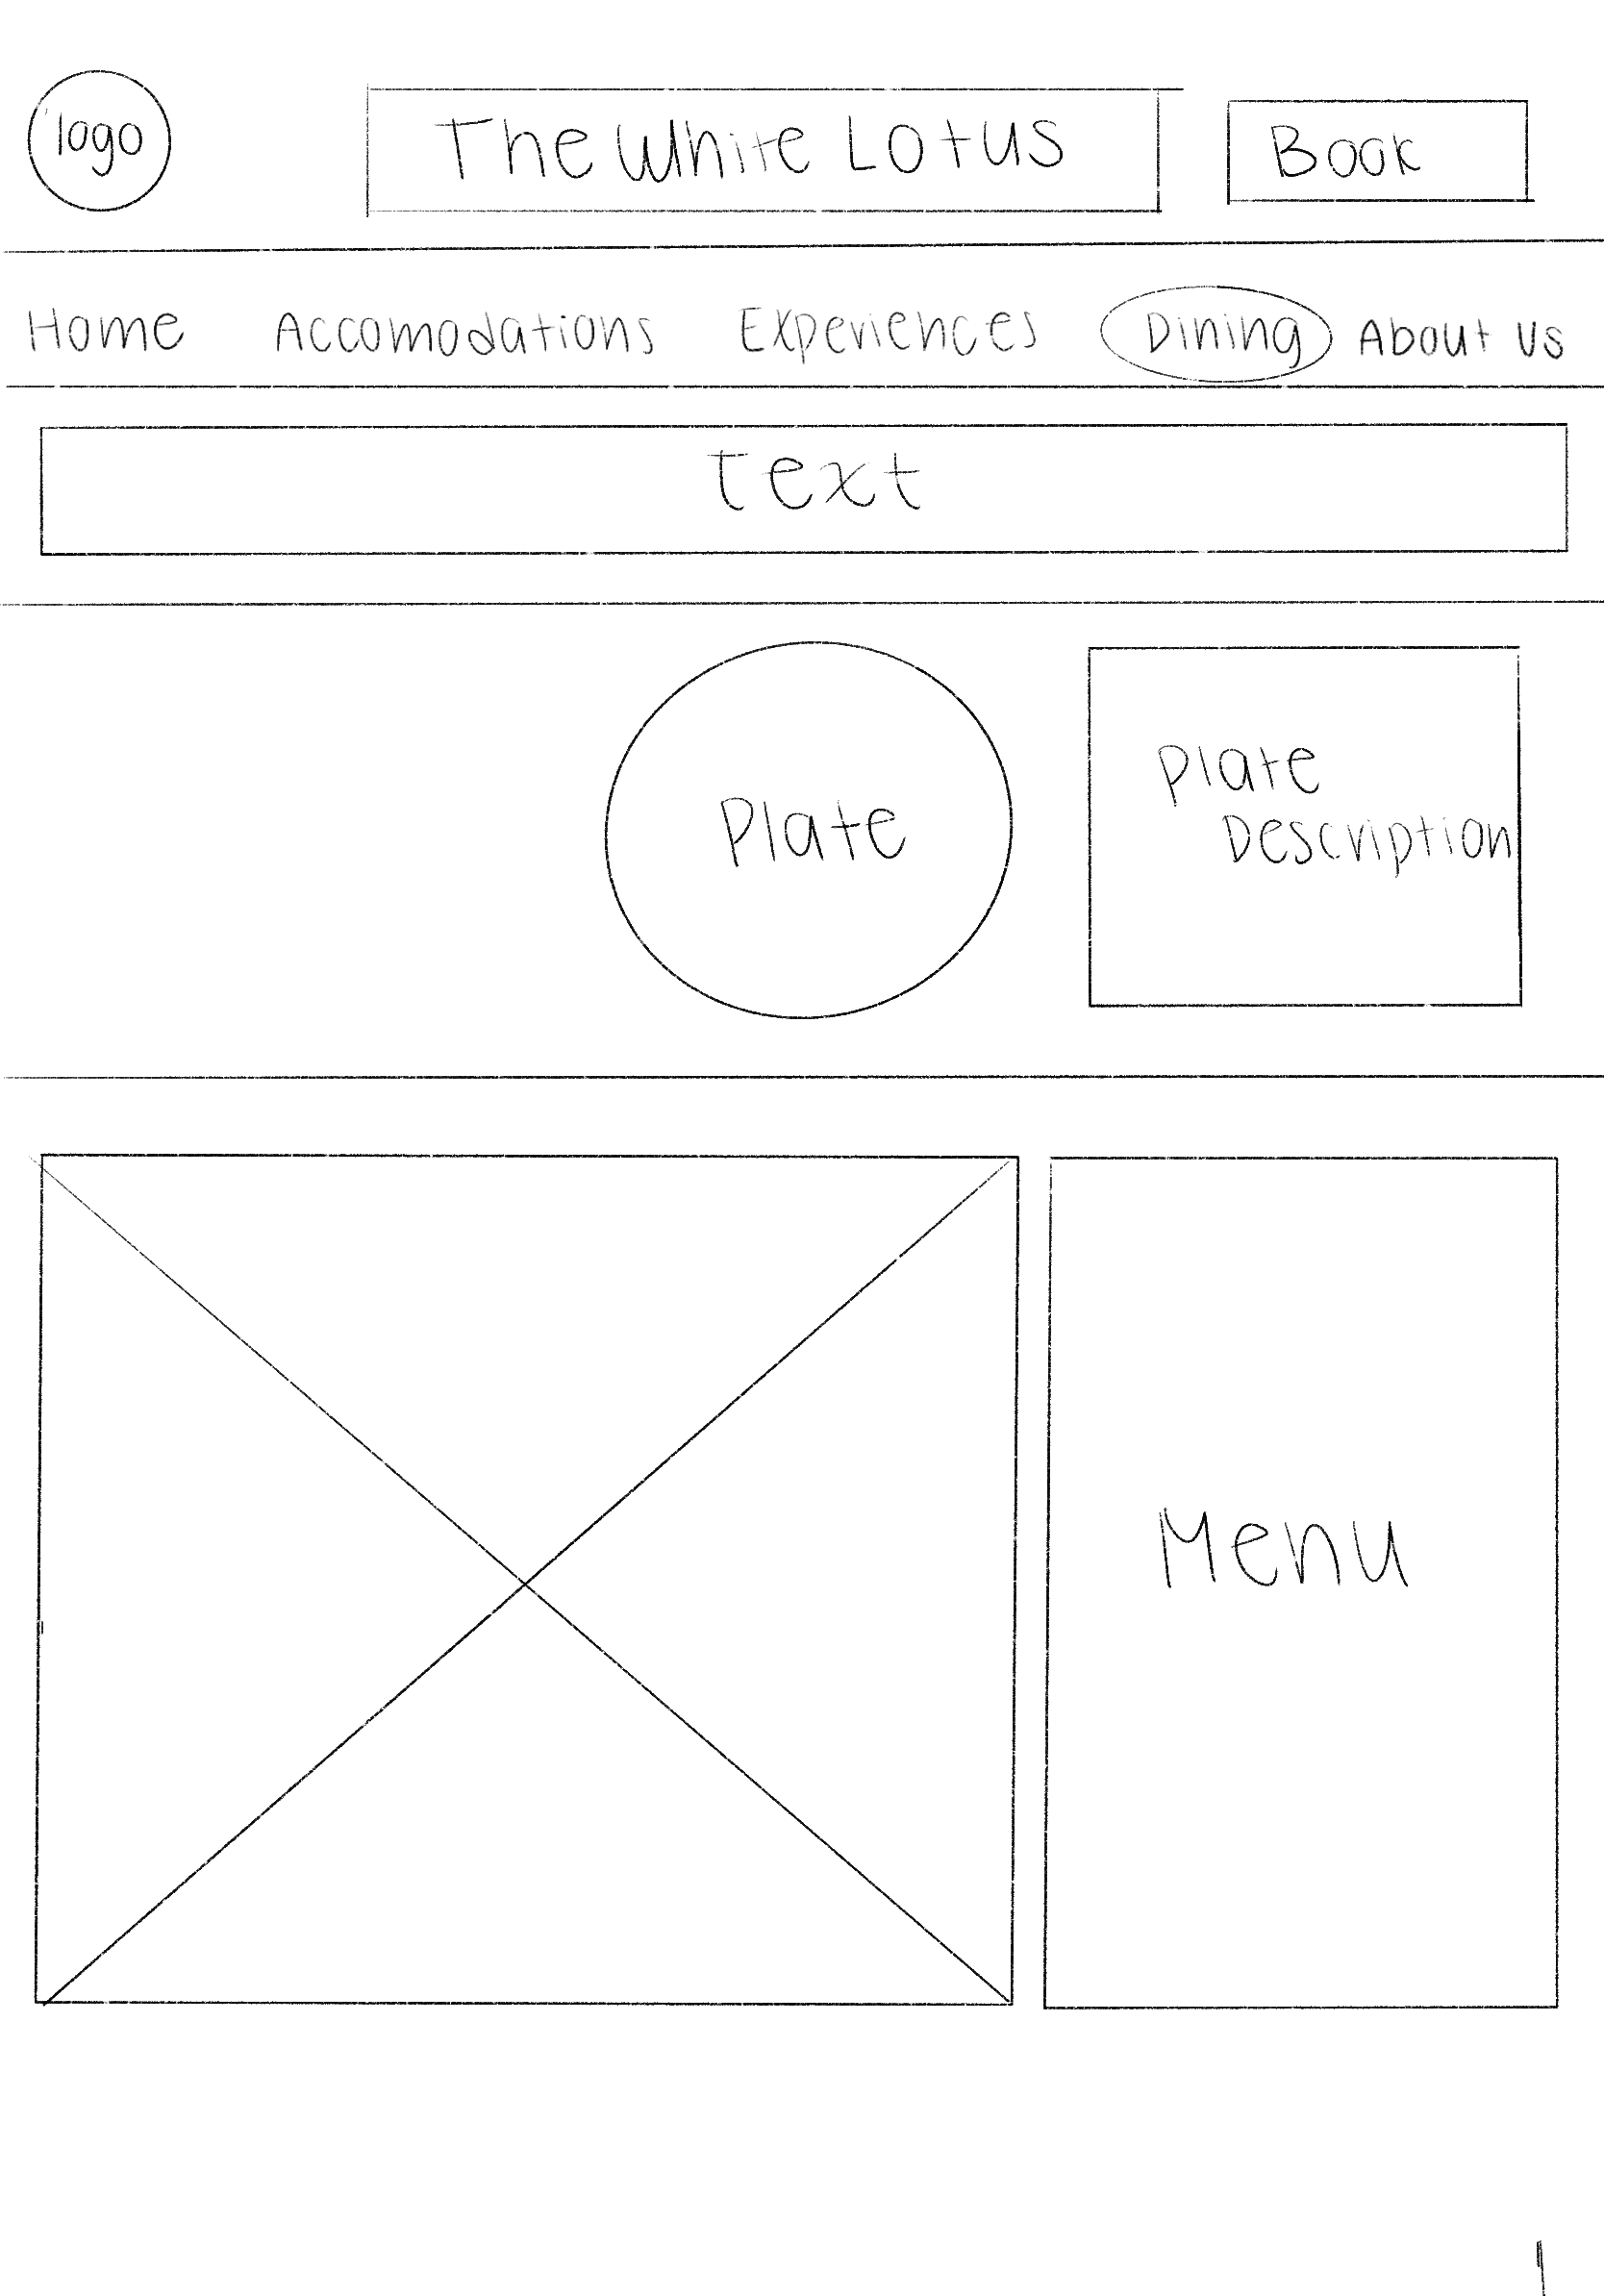 logo
The White Lotus
Book
Home Accomodations Experiences Dining About us
text
Plate
Plate
Description
Menu